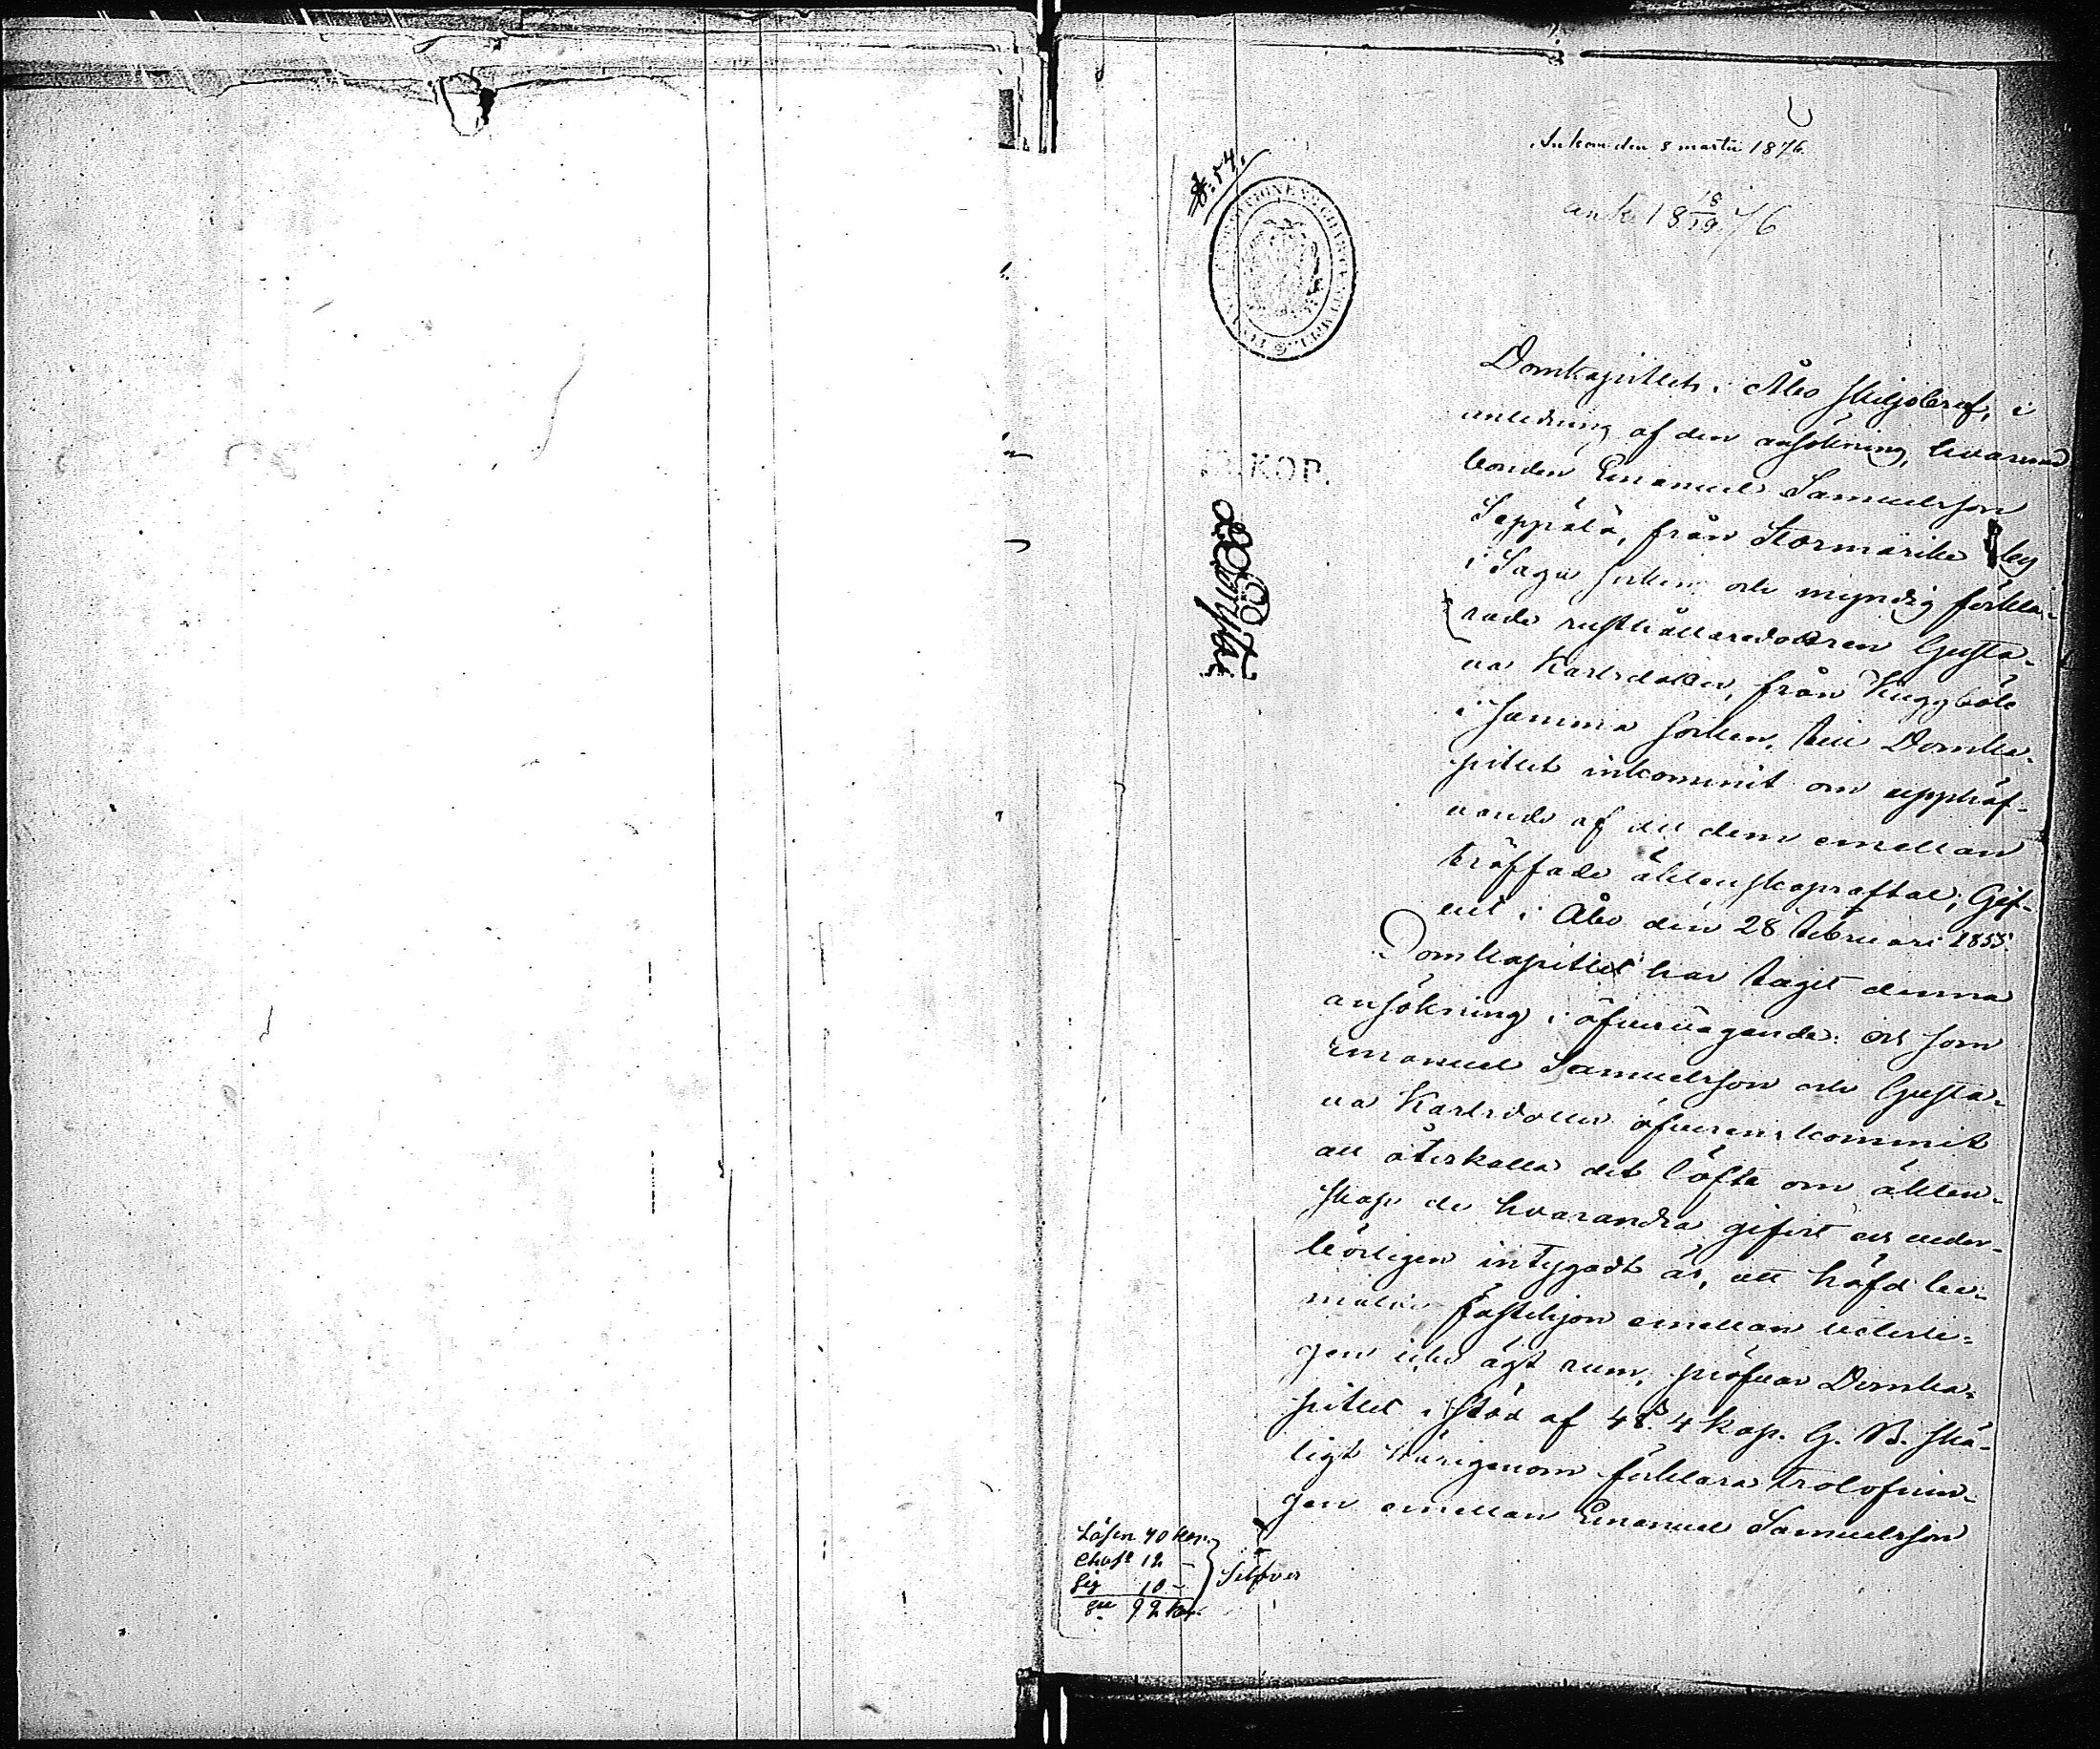 Inkom den 8 martii 1876.
ank 18 18/19 76
N:o 54.
KOP.
Domkapitlets i Åbo skiljobref, i
anledning af den ansökning, hvarmed
bonden Emanuel Samuelsson
Seppälä, från Stormärike by
i Sagu socken och myndig förkla-
rade rusthållaredottren Gusta-
va Karlsdotter, från Kuggböle
i samma socken, till Domka-
pitlet inkommit om upphäf-
vande af det dem emellan
träffade äktenskapsaftal; Gif-
vet i Åbo den 28 februari 1855.
Domkapitlet har tagit denna
ansökning i öfvervägande: och som
Emanuel Samuelsson och Gusta-
va Karlsdotter öfverenskommit
att återkalla det löfte om äkten-
skap de hvarandra gifvit och veder-
börligen intygadt är, att häfd
emellan
gen icke ägt rum, pröfvar Domka-
pitlet i stöd af 4 § 4 kap. G. B. skä-
ligt härigenom förklara trolofnin-
gen emellan Emanuel Samuelsson
Lösen 70 kop.
Chart 12 –
Sig 10 –
S:a 92 kop.
Silfver